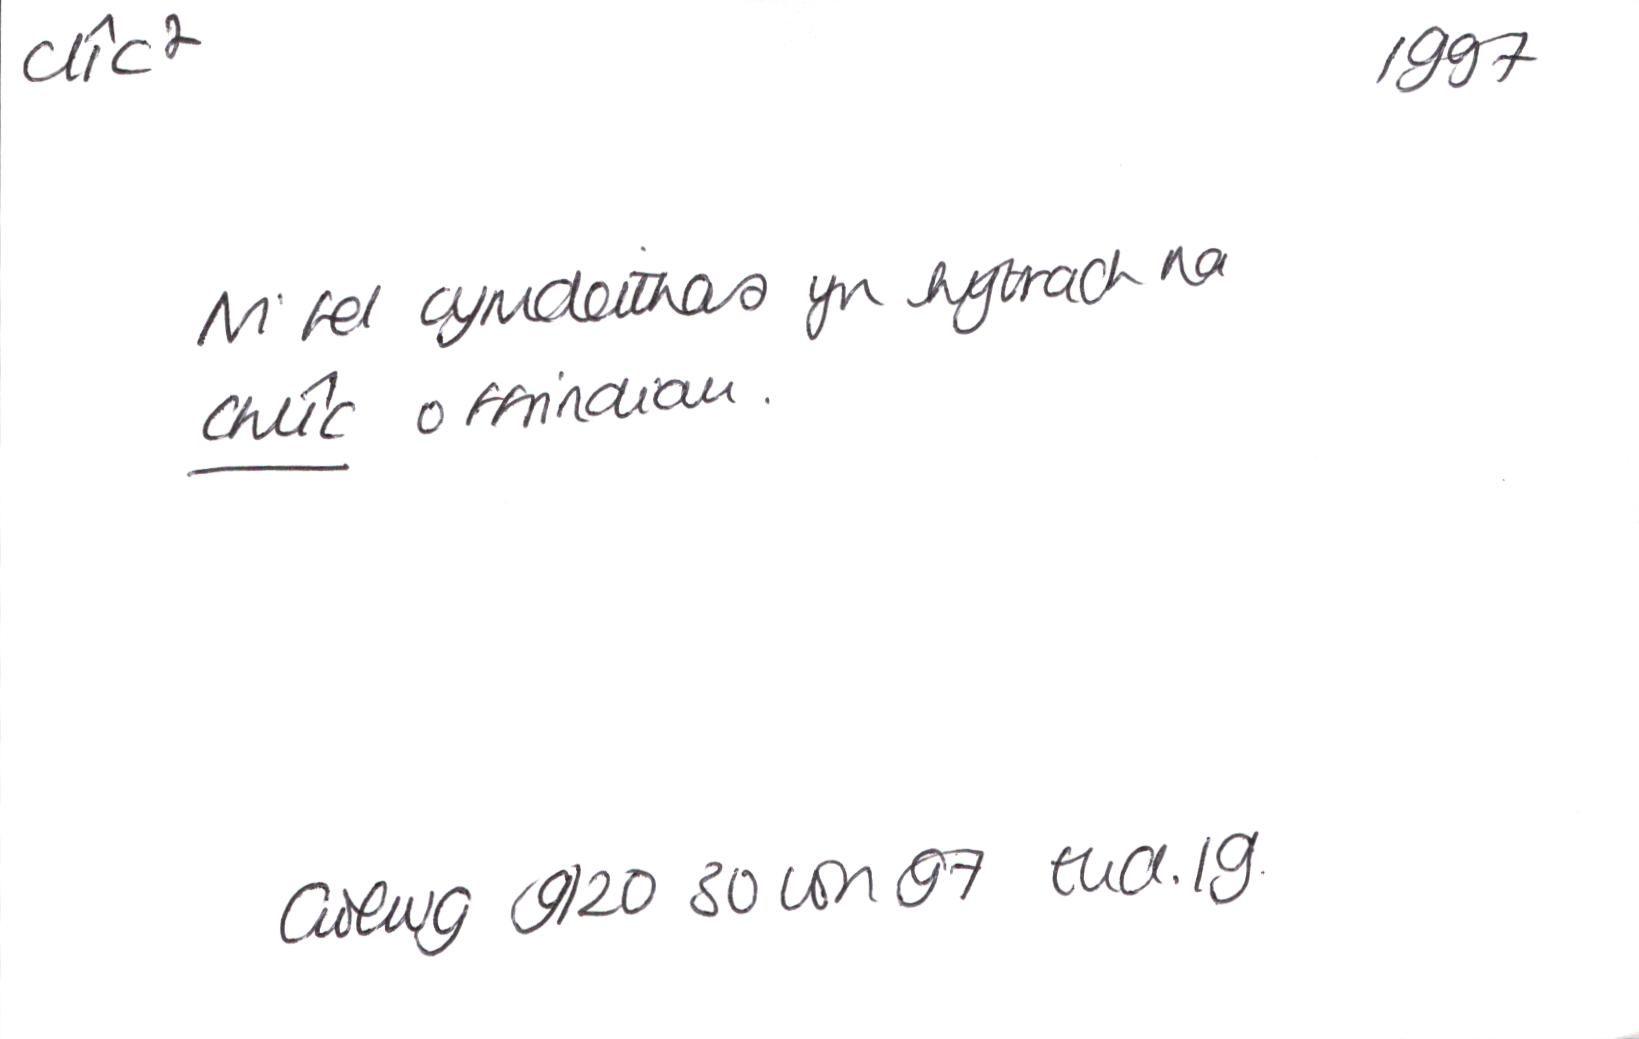 clîc² 1997
Ni fel cymdeithas yn hytrach na
chlîc o ffrindiau.
Golwg 9/20 30 Ion 97 tud. 19.